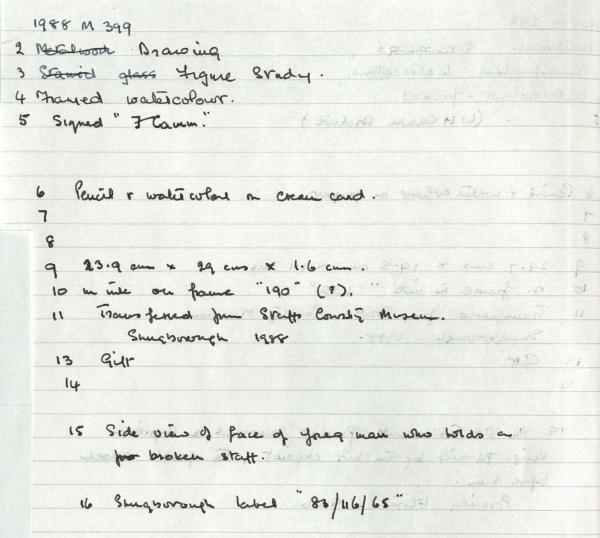 1988 M 399
2 Metalwork Drawing
3 Stained glass Figure Study.
4 Framed watercolour.
5 Signed "F Camm."
6 Pencil & watercolour on cream card.
7
8
9 23.9 cms x 29 cms x 1.6 cms.
10 in ink on frame "190" (?).
11 Transferred from Staffs County Museum.
Shugborough 1988
13 Gift
14
15 Side view of face of young man who holds a
broken staff.
16 Shugborough label "83/116/65"